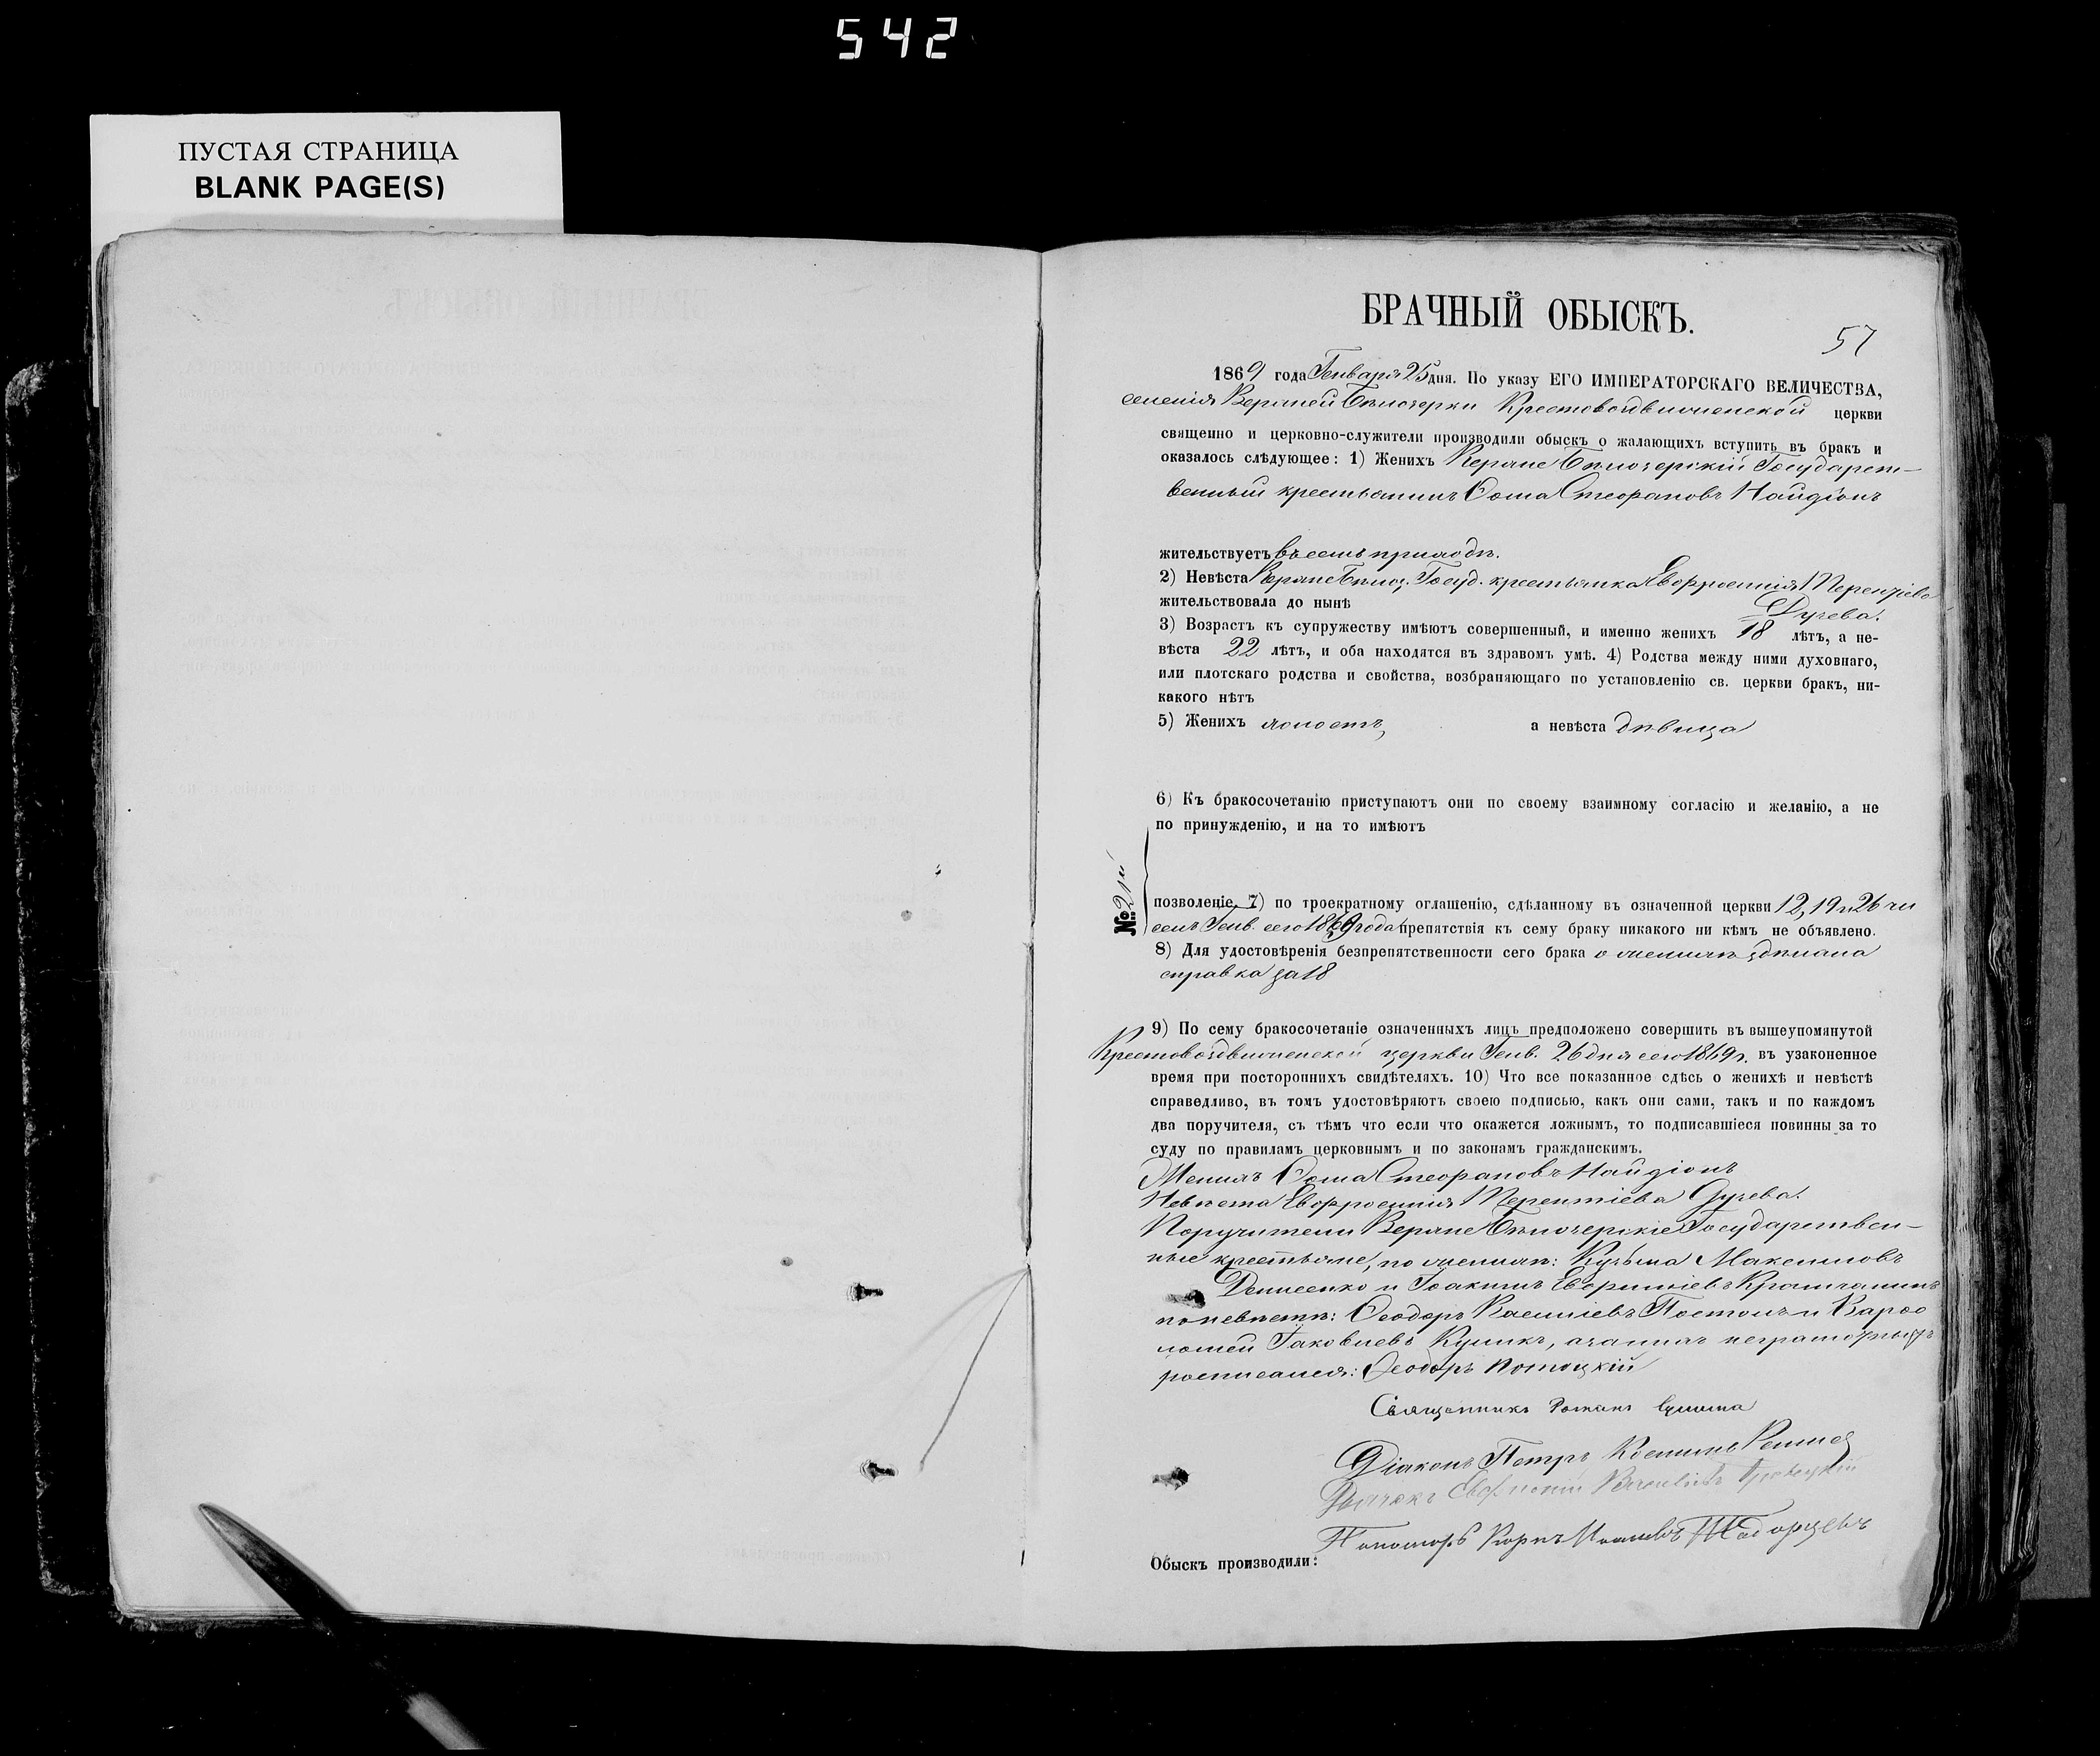 542
ПУСТАЯ СТРАНИЦА
BLANK PAGE(S)
БРАЧНЫЙ ОБЫСКЪ.
57
1869 года Генваря 25 дня. По указу ЕГО ИМПЕРАТОРСКАГО ВЕЛИЧЕСТВА,
селенія Верхней Бѣлозерки Крестовоздвиженской церкви
священно и церковно-служители производили обыскъ о жалающихъ вступить въ бракъ и
оказалось слѣдующее: 1) Женихъ Верхне Бѣлозерскій Государст-
венный крестьянинъ Ѳома Стефановъ Найдіонъ
жительствуетъ въ семъ приходѣ.
2) Невѣста Верхне Бѣлоз. Госуд. крестьянка Евфросинія Терентіева
жительствовала до нынѣ
3) Возрастъ къ супружеству имѣютъ совершенный, и именно женихъ 18 лѣтъ, а не-
вѣста 22 лѣтъ, и оба находятся въ здравомъ умѣ. 4) Родства между ними духовнаго,
или плотскаго родства и свойства, возбраняющаго по установленію св. церкви бракъ, ни-
какого нѣтъ
5) Женихъ холостъ, а невѣста дѣвица
6) Къ бракосочетанію приступаютъ они по своему взаимному согласію и желанію, а не
по принужденію, и на то имѣютъ
№ 21й
позволеніе 7) по троекратному оглашенію, сдѣланному въ означенной церкви 12, 19 и 26 чи
селъ Генв. сего 1869 года препятствія къ сему браку никакого ни кѣмъ не объявлено.
8) Для удостовѣренія безпрепятственности сего брака о женихѣ здѣлана
справка за 18
9) По сему бракосочетаніе означенныхъ лицъ предположено совершить въ вышеупомянутой
Крестовоздвиженской церкви Генв. 26 дня сего 1869 г. въ узаконенное
время при постороннихъ свидѣтеляхъ. 10) Что все показанное сдѣсь о женихѣ и невѣстѣ
справедливо, въ томъ удостовѣряютъ своею подписью, какъ они сами, такъ и по каждомъ
два поручителя, съ тѣмъ что если что окажется ложнымъ, то подписавшіеся повинны за то
суду по правиламъ церковнымъ и по законамъ гражданскимъ.
Женихъ Ѳома Стефановъ Найдіонъ
Невѣста Евфросинія Терентіева
Поручители Верхне Бѣлозерскіе Государствен-
ные крестьяне, по женихѣ: Кузьма Максимовъ
Денисенко и Іоакимъ
по невѣстѣ: Ѳеодоръ Васильевъ и Варѳо
ломей Іаковлевъ Куликъ, а за нихъ неграмотныхъ
росписался: Ѳеодоръ Потоцкій
Священникъ Романъ
Діаконъ Петръ
Дьячекъ Евфимій
Пономарь
Обыскъ производили: